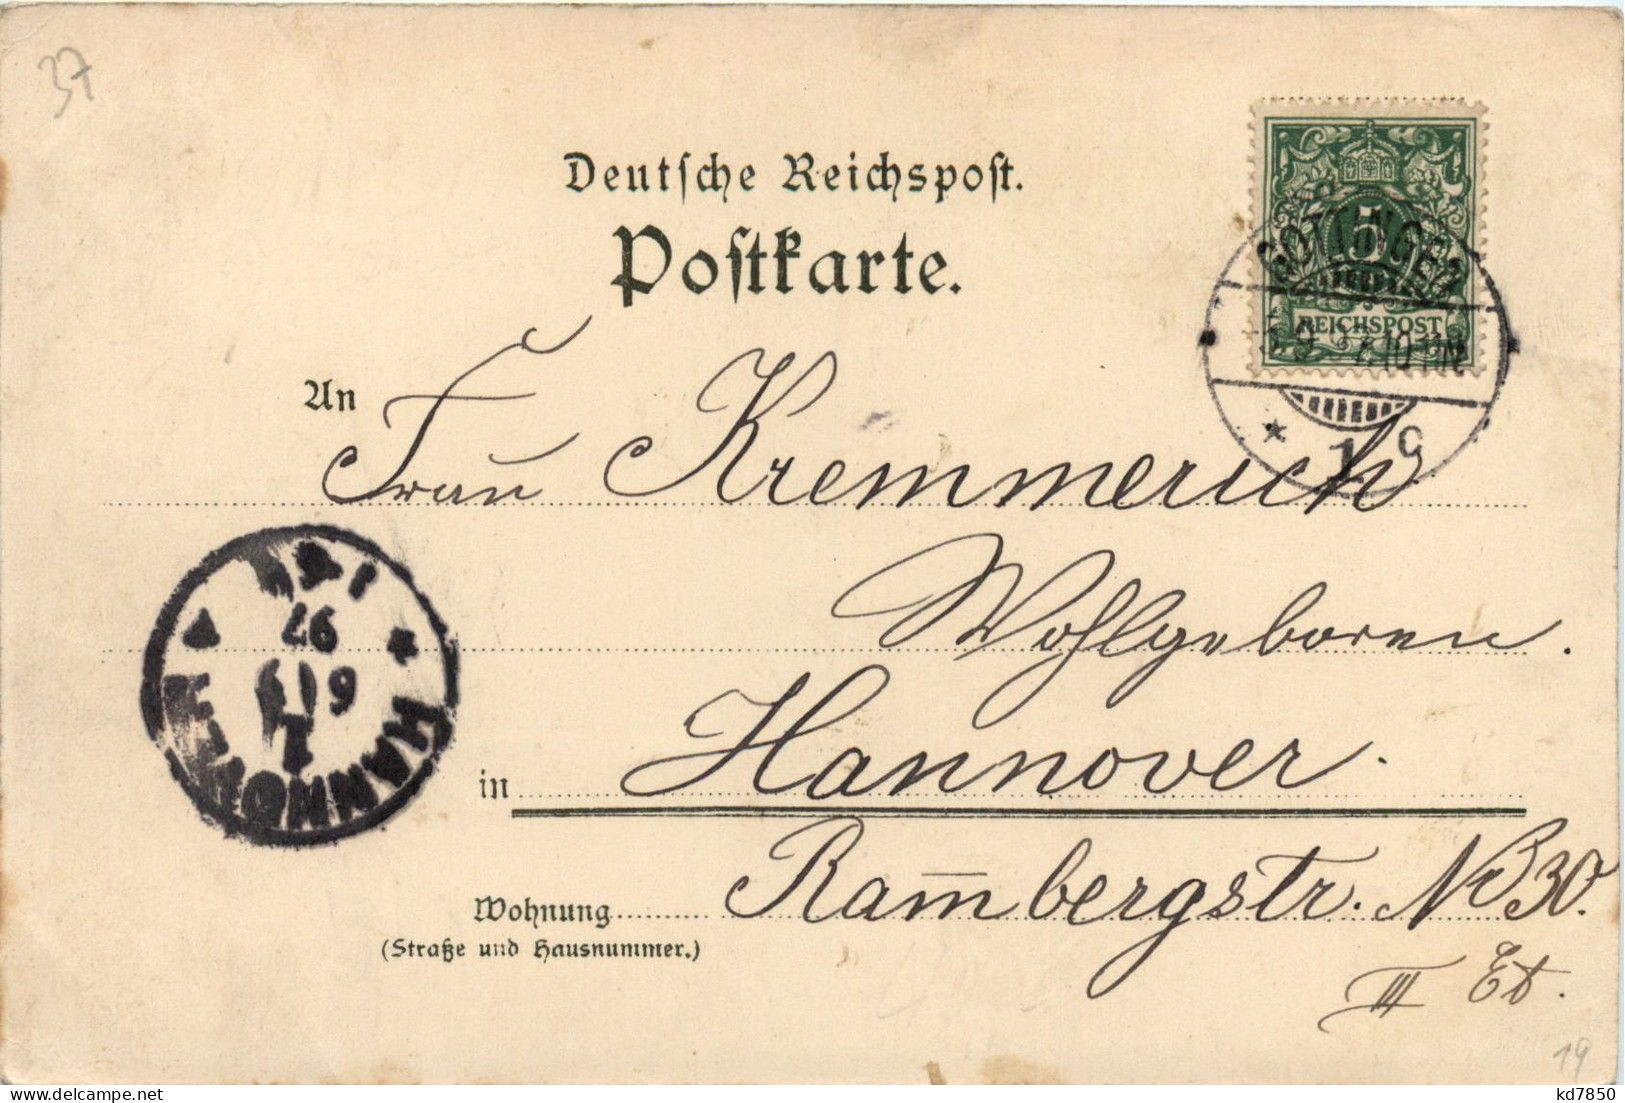 37
Deutsche Reichspost.
Postkarte.
5
REICHSPOST
GÖTTINGEN
5.9. 97. 10-11N
* 1 c
An Frau Kremmerich
Wohlgeboren.
in Hannover.
Wohnung Ram̅bergstr. No 30.
(Straße und Hausnummer.)
III Et.
HANNOVER
1
6 9
97
19
kd7850